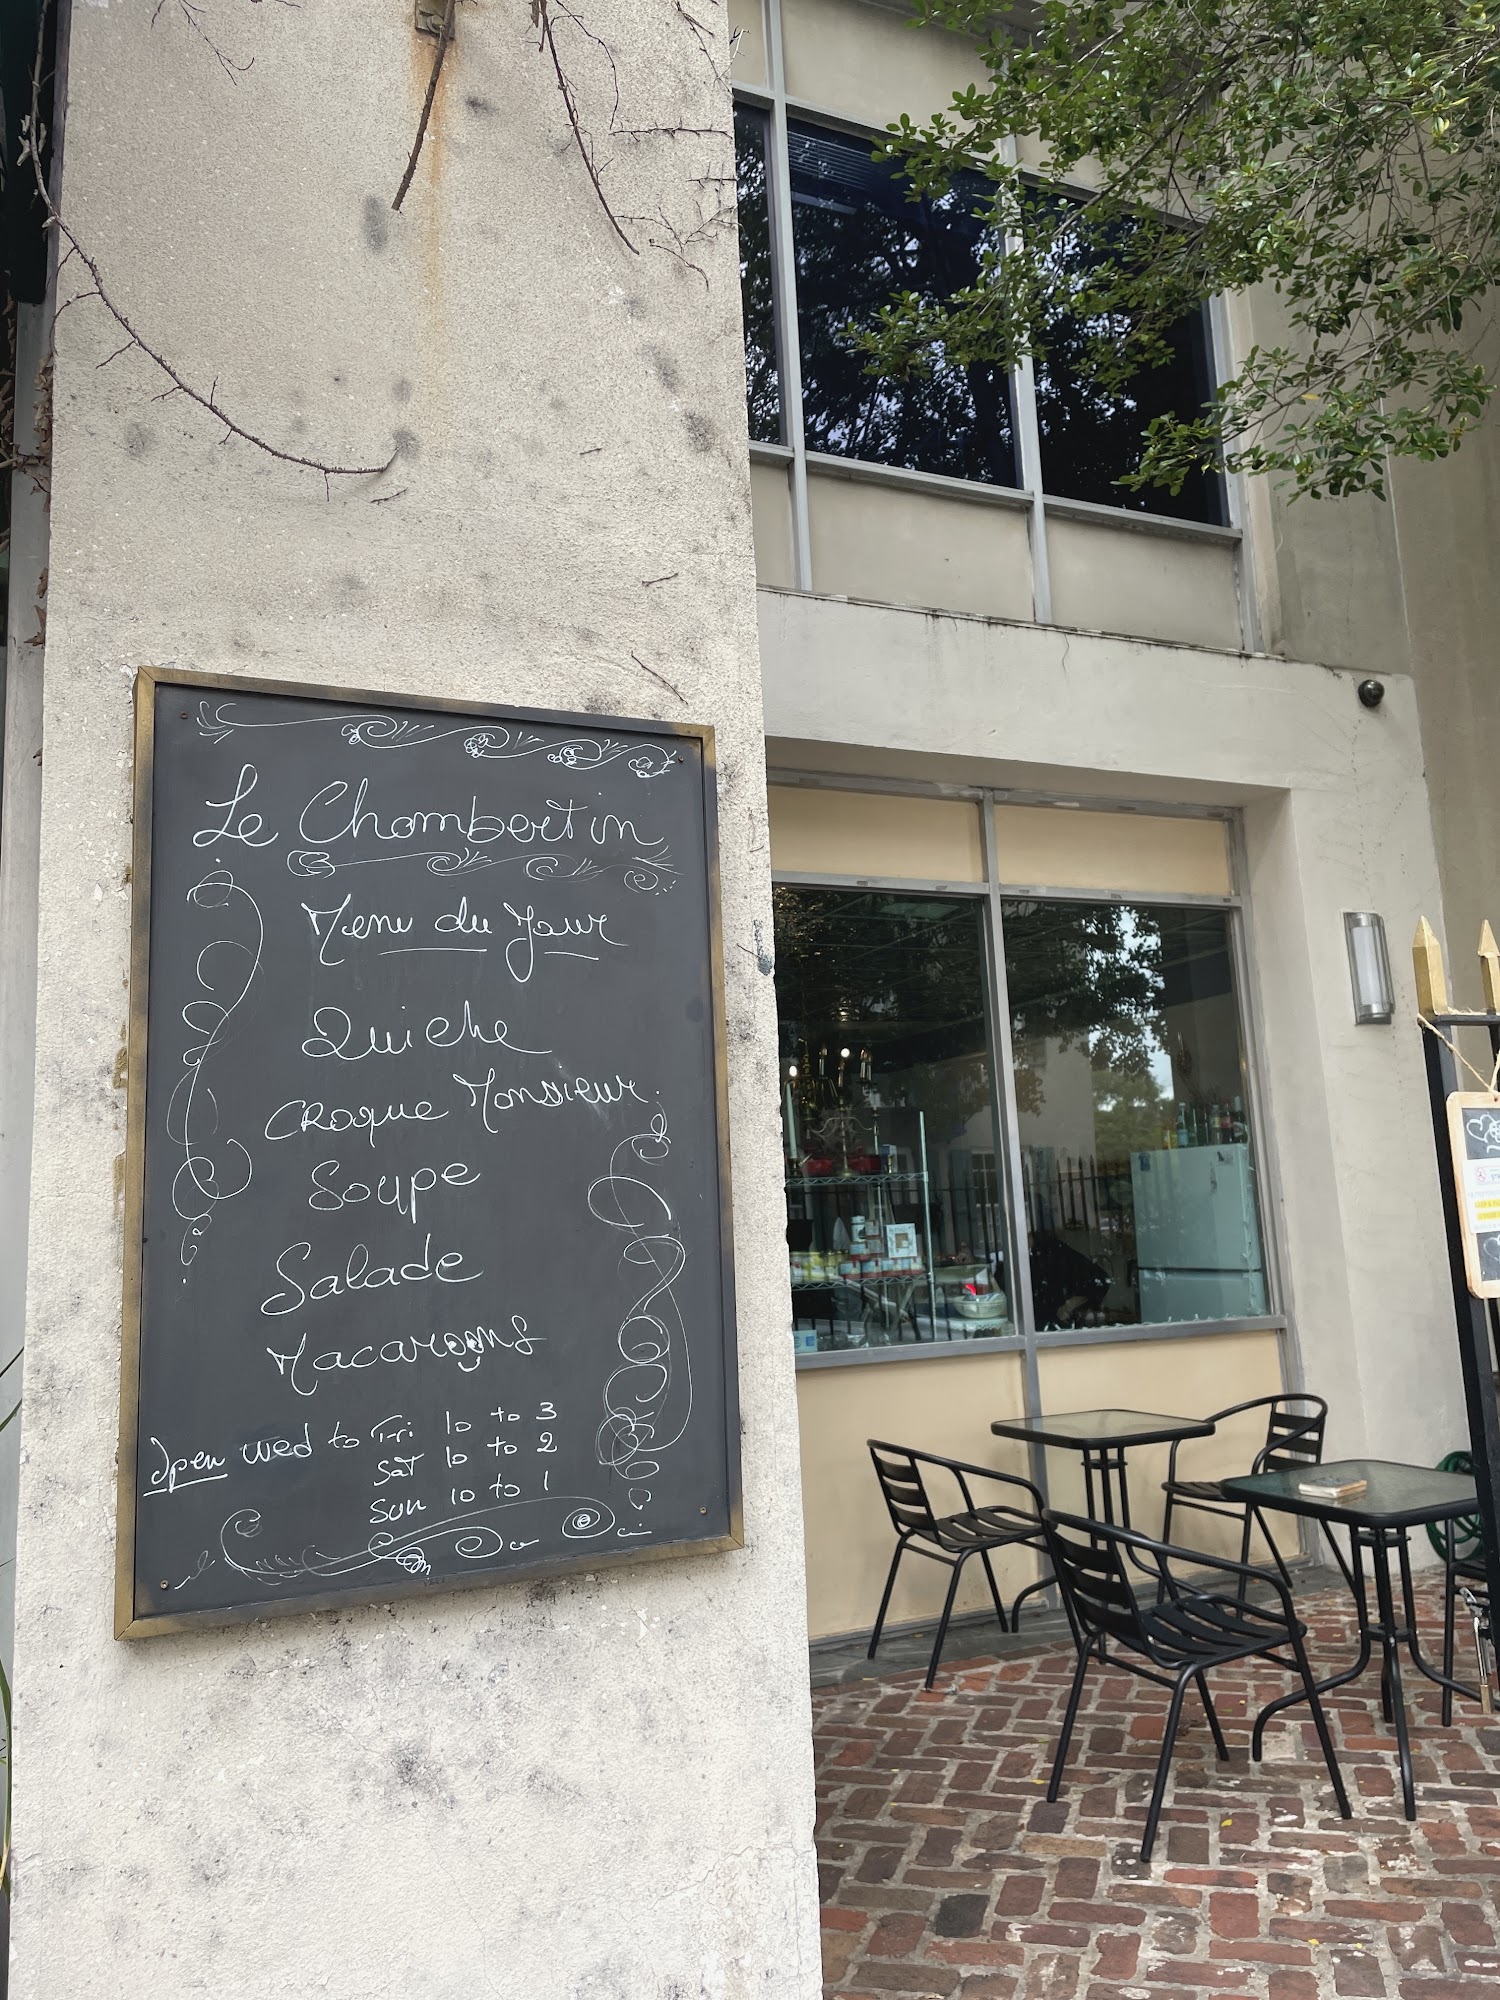 Le Chambertin
Menu du Jour
Quiche
CROque Monsieur.
Soupe
Salade
Macarons
Open wed to Fri 10 to 3
Sat 10 to 2
Sun 10 to 1